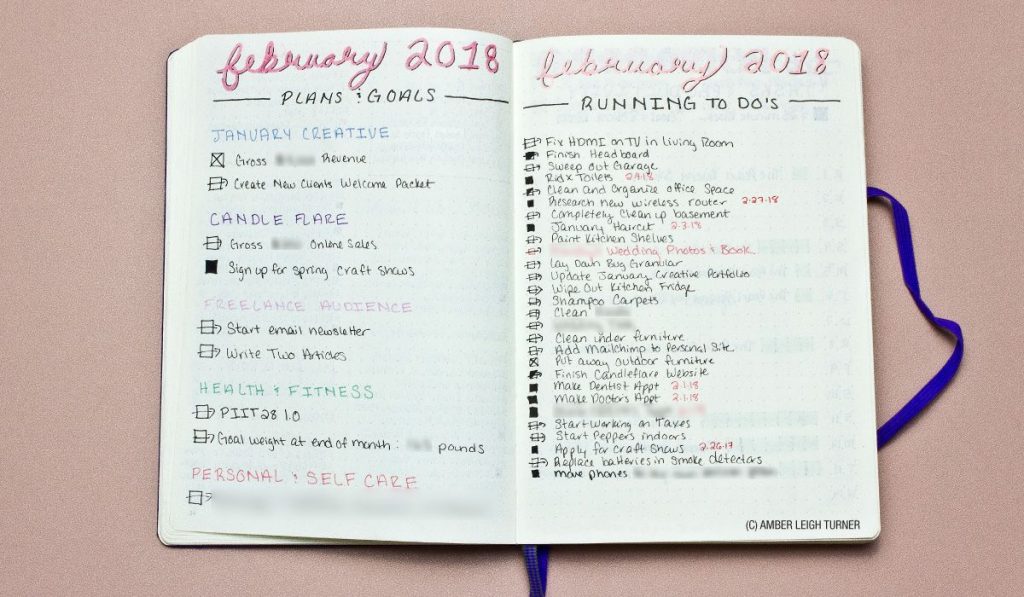 february 2018
PLANS & GOALS
JANUARY CREATIVE
Gross Revenue
Create New Clients Welcome Packet
CANDLE FLARE
Gross Online Sales
Sign up for spring Craft Shows
FREELANCE AUDIENCE
Start email newsletter
Write Two Articles
HEALTH & FITNESS
PIIT28 1.0
Goal weight at end of month: pounds
PERSONAL & SELF CARE
february 2018
RUNNING TO DO'S
Fix HDMI on TV in Living Room
Finish Headboard
Sweep out Garage
Ridx Toilets 2.4.18
Clean and Organize office Space
Research new wireless router 2.27.18
Completely Clean up basement
January Haircut 2.3.18
Paint Kitchen Shelves
Wedding Photos & Book
Lay Down Bug Granular
Update January Creative Portfolio
Wipe Out Kitchen Fridge
Shampoo Carpets
Clean
Clean under furniture
Add Mailchimp to Personal Site
Put away outdoor furniture
Finish Candleflare Website
Make Dentist Appt 2.1.18
Make Doctor's Appt 2.1.18
Start Working on Taxes
Start Peppers indoors
Apply for Craft Shows 2.26.17
Replace batteries in smoke detectors
move phones
(C) AMBER LEIGH TURNER